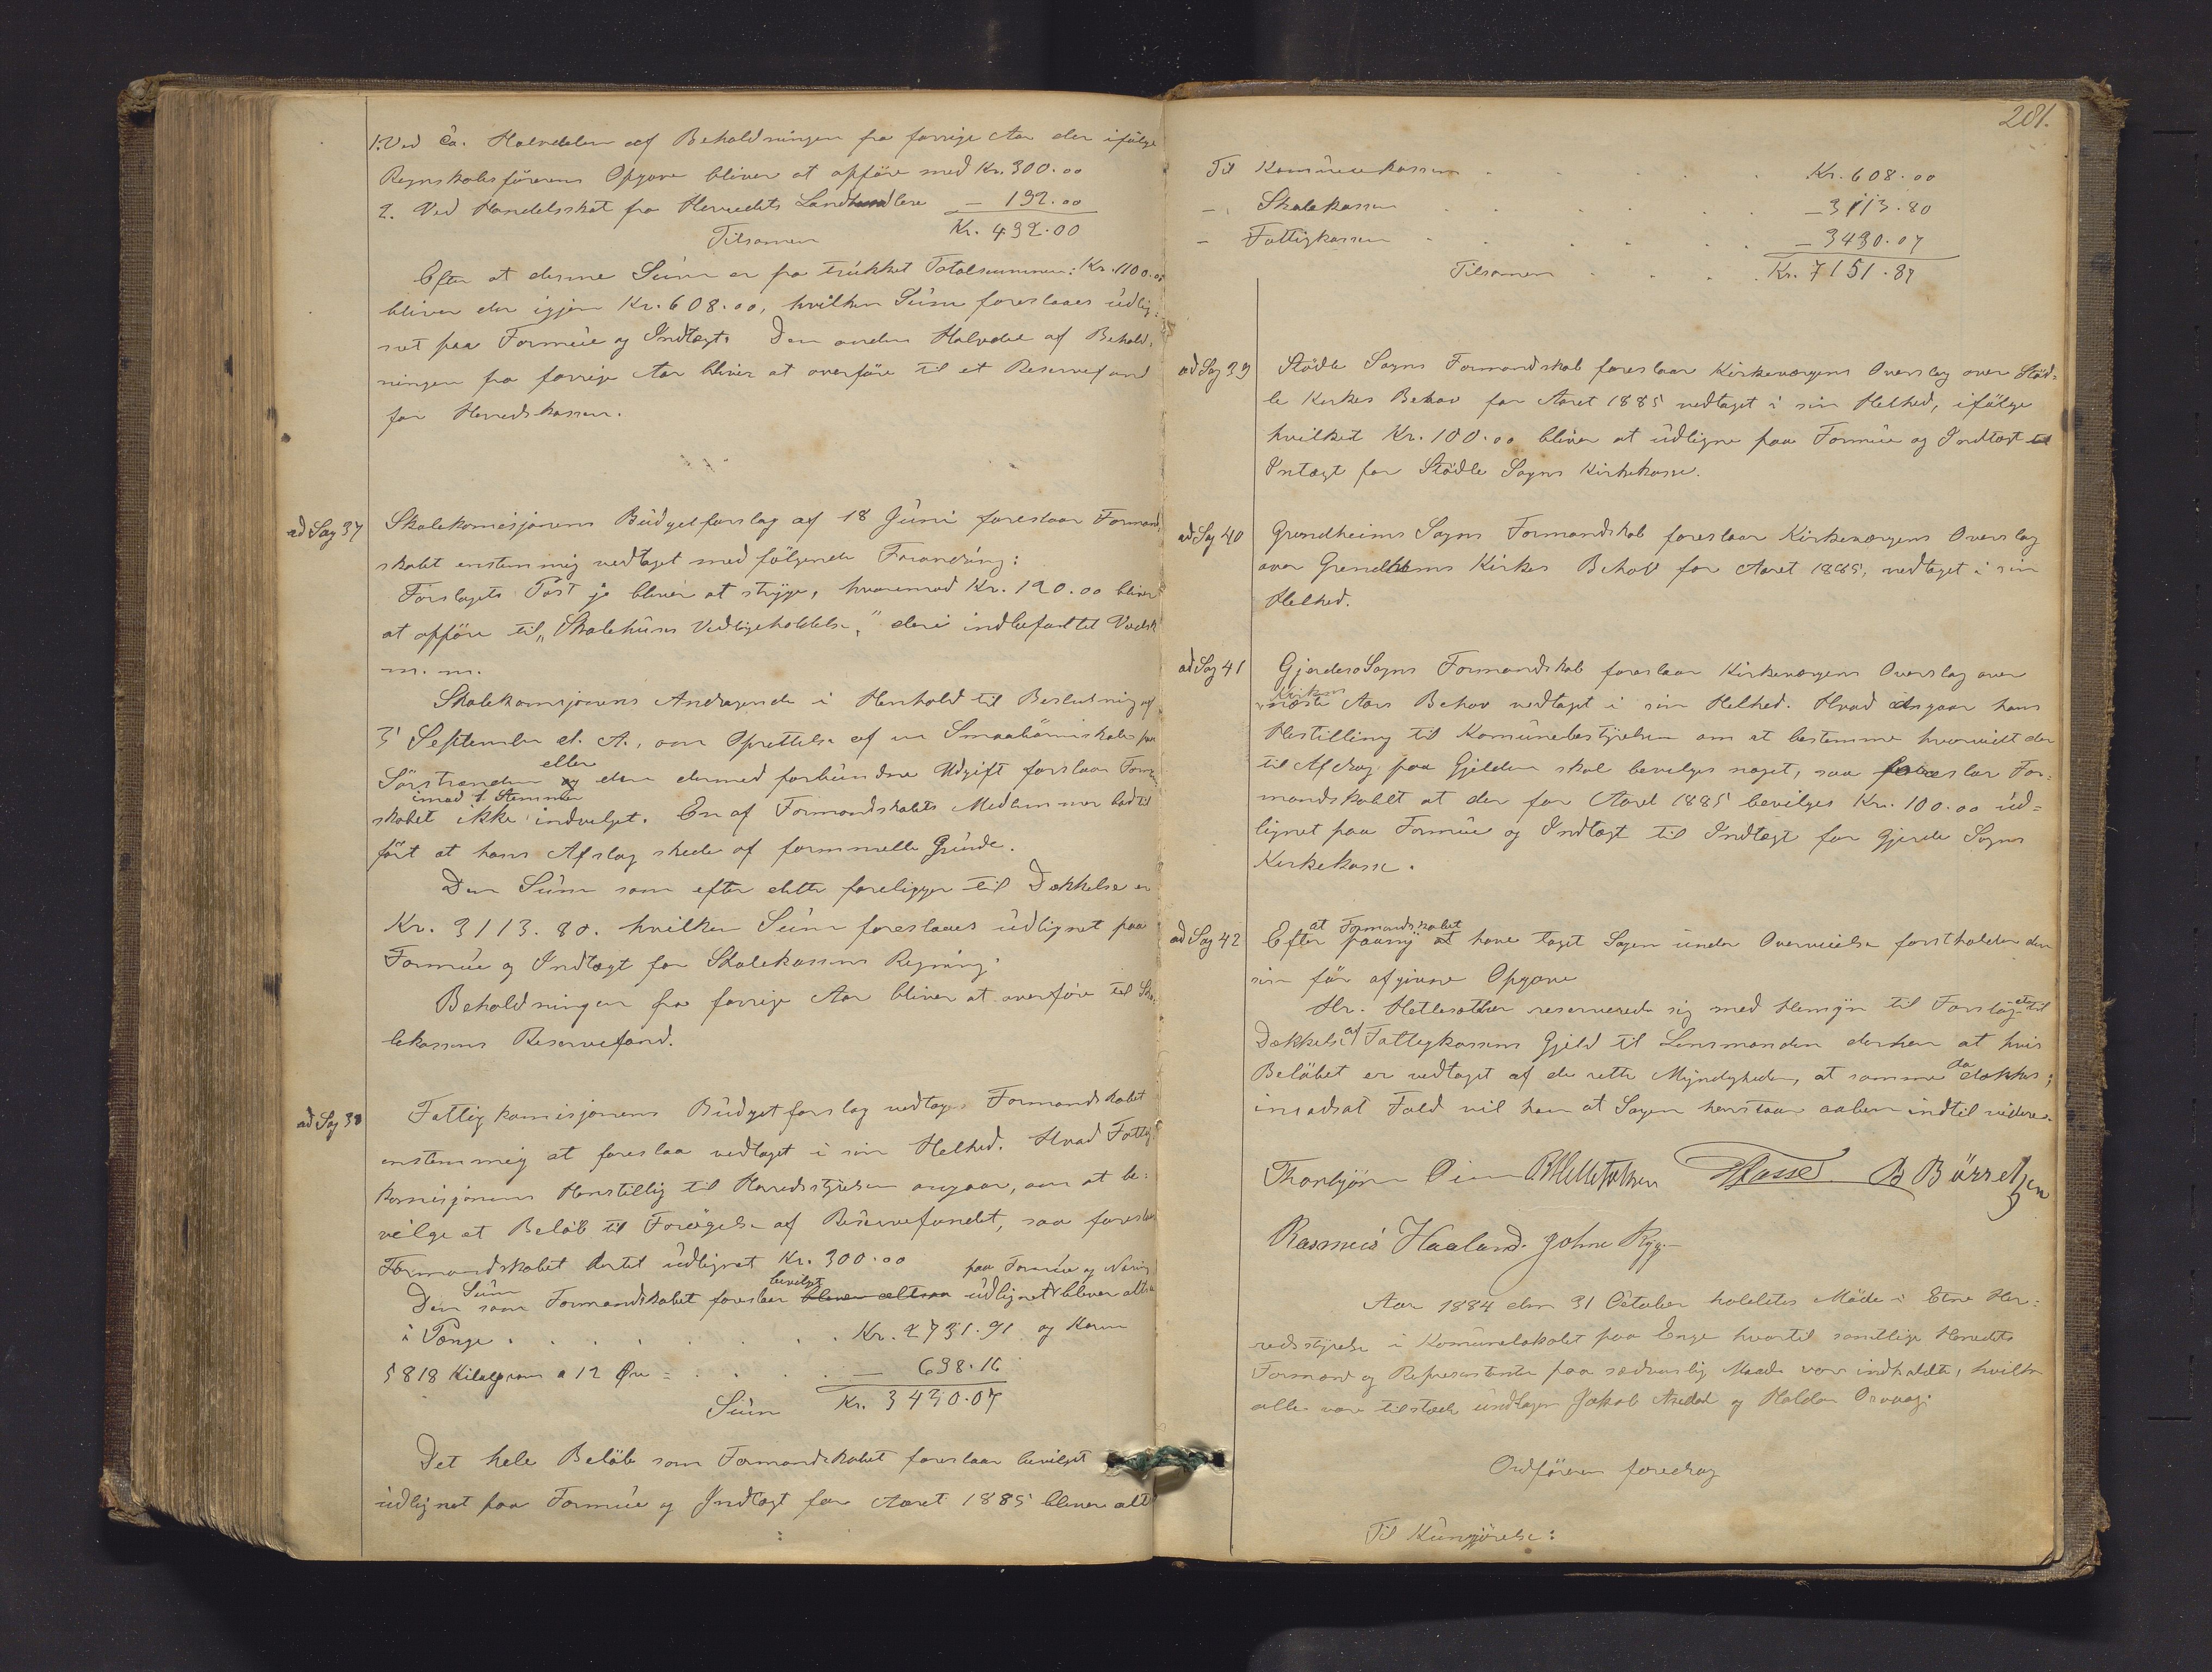 1. Ved ca. Halvdelen af Beholdningen fra forrige Aar der ifölge
Regnskabsförerens Opgave bliver at opföre med Kr. 300.00
2. Ved Handelsskat fra Herredets Landhandlere — 192.00
Tilsamen Kr. 492.00
Efter at denne Sum er fra trukket Totalsummen: Kr. 1100.00
bliver der igjen Kr. 608.00, hvilken Sum foreslaaes udlig-
net paa Formue og Indtægt. Den anden Halvdel af Behold-
ningen fra forrige Aar bliver at overföre til et Reservefond
for Herredskassen.
ad Sag 37 Skolekomisjonens Budgetforslag af 18 Juni foreslaar Formand-
skabet enstemmig vedtaget med fölgende Forandring:
Forslagets Post je bliver at stryge, hvoremod Kr. 120.00 bliver
at opföre til "Skolehuses Vedligeholdelse," deri indbefattet Vedsk
m. m.
Skolekomisjonens Andragende i Henhold til Beslutning af
3 September d. A., om Oprettelse af en Smaabörnsskole paa
Sörstranden og den dermed forbundne Udgift forslaar Form
eller
skabet ikke indvilget. En af Formandskabets Medlemmer lod til
imod 1 Stemme
fört at hans Afslag skede af formmelle Grunde.
Den Sum som efter dette foreligger til Dækkelse er
Kr. 3113.80. hvilken Sum foreslaaes udlignet paa
Formue og Indtægt for Skolekassens Regning.
Beholdningen fra forrige Aar bliver at overföre til Sko-
lekassens Reservefond.
ad Sag 38 Fattigkomisjonens Budgetforslag vedtager Formandskabet
enstemmig at foreslaa vedtaget i sin Helhed. Hvad Fattig
komisjonens Henstillig til Herredsstyrelsen angaar, om at be-
vilge et Belöb til Forögelse af Reservefondet, saa foreslaar
Formandskabet dertil udlignet Kr. 300.00 paa Formue og Næring
Den Sum som Formandskabet foreslaar bliver altsaa bevilget udlignet bliver altsaa
i Penge . . . Kr. 2731.91 og Korn
5818 Kilogram a 12 Öre = . . . — 698.16
Sum Kr. 3430.07
Det hele Belöb som Formandskabet foreslaar bevilget
udlignet paa Formue og Indtægt for Aaret 1885 bliver alt
281.
Til Komunekassen . . . Kr. 608.00
— Skolekassen . . . — 3113.80
— Fattigkassen . . . — 3430.07
Tilsamen . . . Kr. 7151.87
ad Sag 39 Stödle Sogns Formandskab foreslaar Kirkeværgens Overslag over Stöd-
le Kirkes Behov for Aaret 1885 vedtaget i sin Helhed, ifölge
hvilket Kr. 100.00 bliver at udligne paa Formue og Indtægt til
Intægt for Stödle Sogns Kirkekasse.
ad Sag 40 Grendheims Sogns Formandskab foreslaar Kirkeværgens Overslag
over Grendheims Kirkes Behov for Aaret 1885, vedtaget i sin
Helhed.
ad Sag 41 Gjerdes Sogns Formandskab foreslaar Kirkeværgens Overslag over
Kirkens
næste Aars Behov vedtaget i sin Helhed. Hvad angaar hans
Hestilling til Komunebestyrelsen om at bestemme hvorvidt der
til Afdrag paa Gjelden skal bevilges noget, saa foreslar For-
mandskabet at der for Aaret 1885 bevilges Kr. 100.00 ud-
lignet paa Formue og Indtægt til Indtægt for Gjerde Sogns
Kirkekasse.
ad Sag 42 Efter at Formandskabet paany at have taget Sagen under Overveielse fastholder den
sin för afgivne Opgave
Hr. Hetlesæther reserverede sig med Hensyn til Forslaget til
Dækkelse af Fattigkassens Gjeld til Lensmanden derhen at hvis
Belöbet er vedtaget af de rette Myndigheder, at samme da dækkes;
imodsat Fald vil han at Sagen henstaar aaben indtil videre.
Thorbjörn Öien B Hetlesæther Fasse B Börretzen
Rasmus Haaland. John Ryg
Aar 1884 den 31 October holdtes Möde i Etne Her-
redsstyrelse i Komunelokalet paa Enge hvortil samtlige Herredets
Formænd og Repræsentanter paa sædvanlig Maade var indkaldt, hvilke
alle vare tilstede undtagen Jakob Aredal og Haldor Osvaag.
Ordföreren foredrog
Til Kungjörelse: